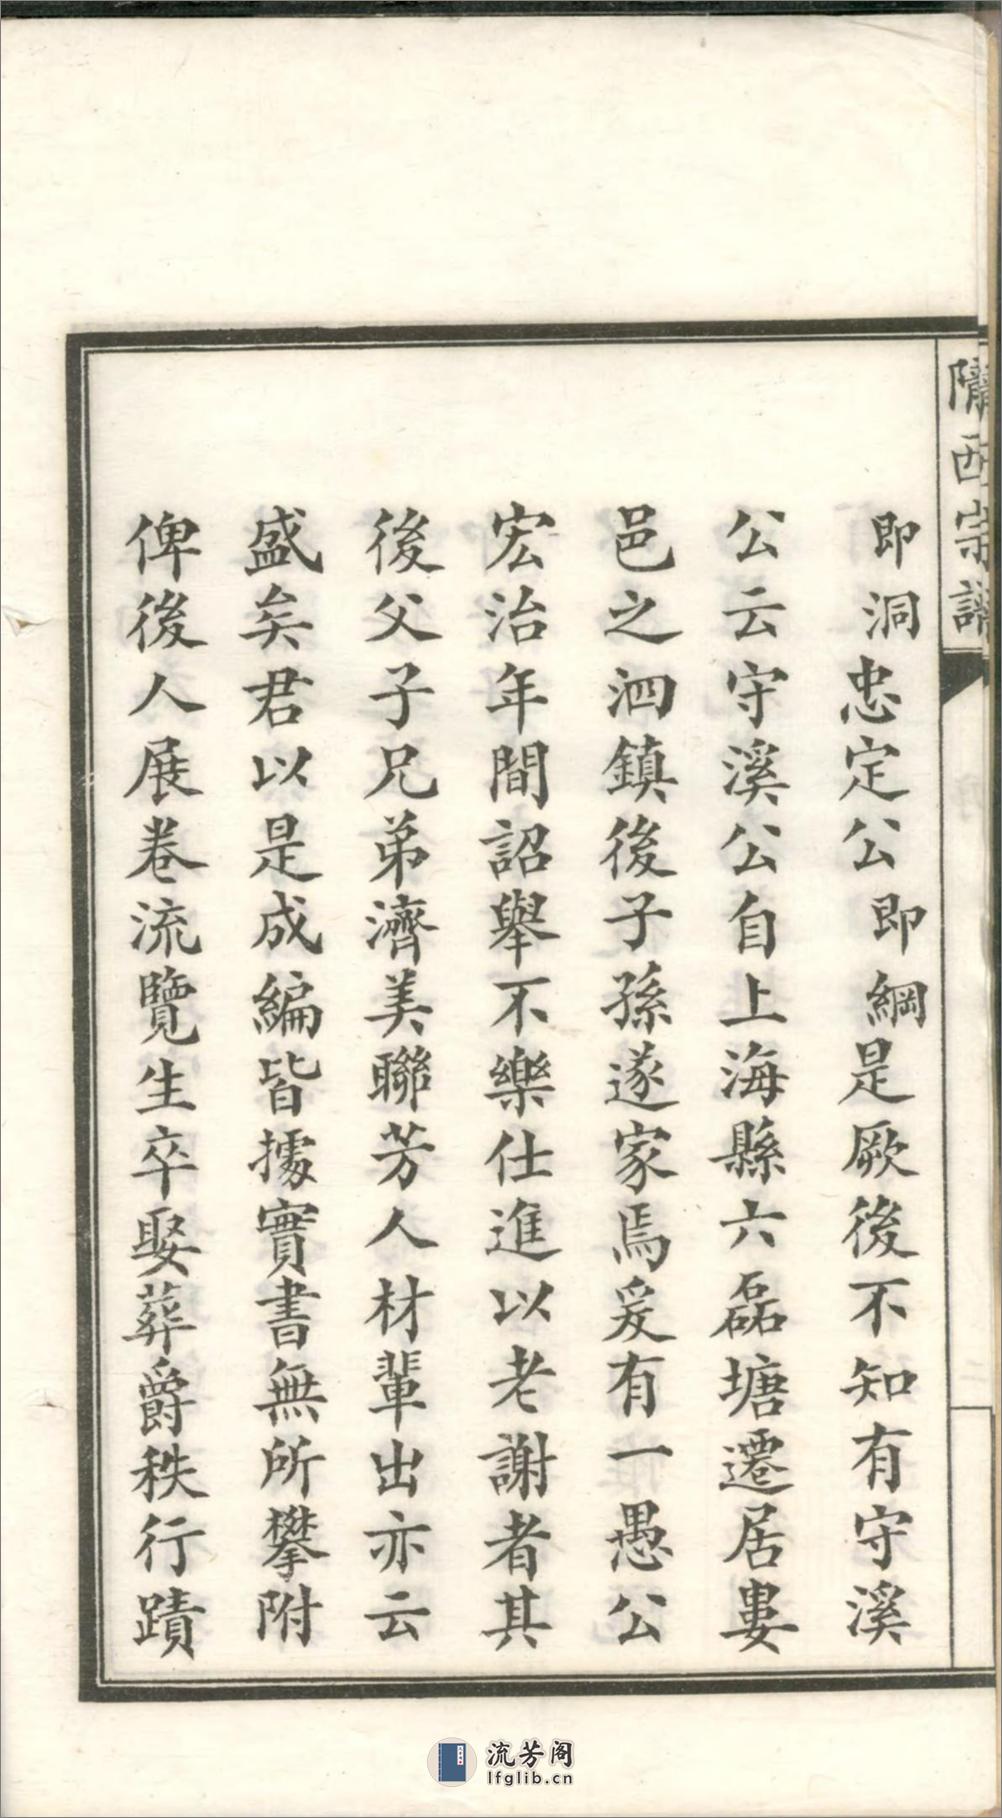 隴西宗譜
即洞忠定公即綱是厥後不知有守溪
公云守溪公自上海縣六磊塘遷居婁
邑之泗鎮後子孫遂家焉爰有一愚公
宏治年間詔舉不樂仕進以老謝者其
後父子兄弟濟美聯芳人材輩出亦云
盛矣君以是成編皆據實書無所攀附
俾後人展卷流覽生卒娶葬爵秩行蹟
流芳阁
lfglib.cn